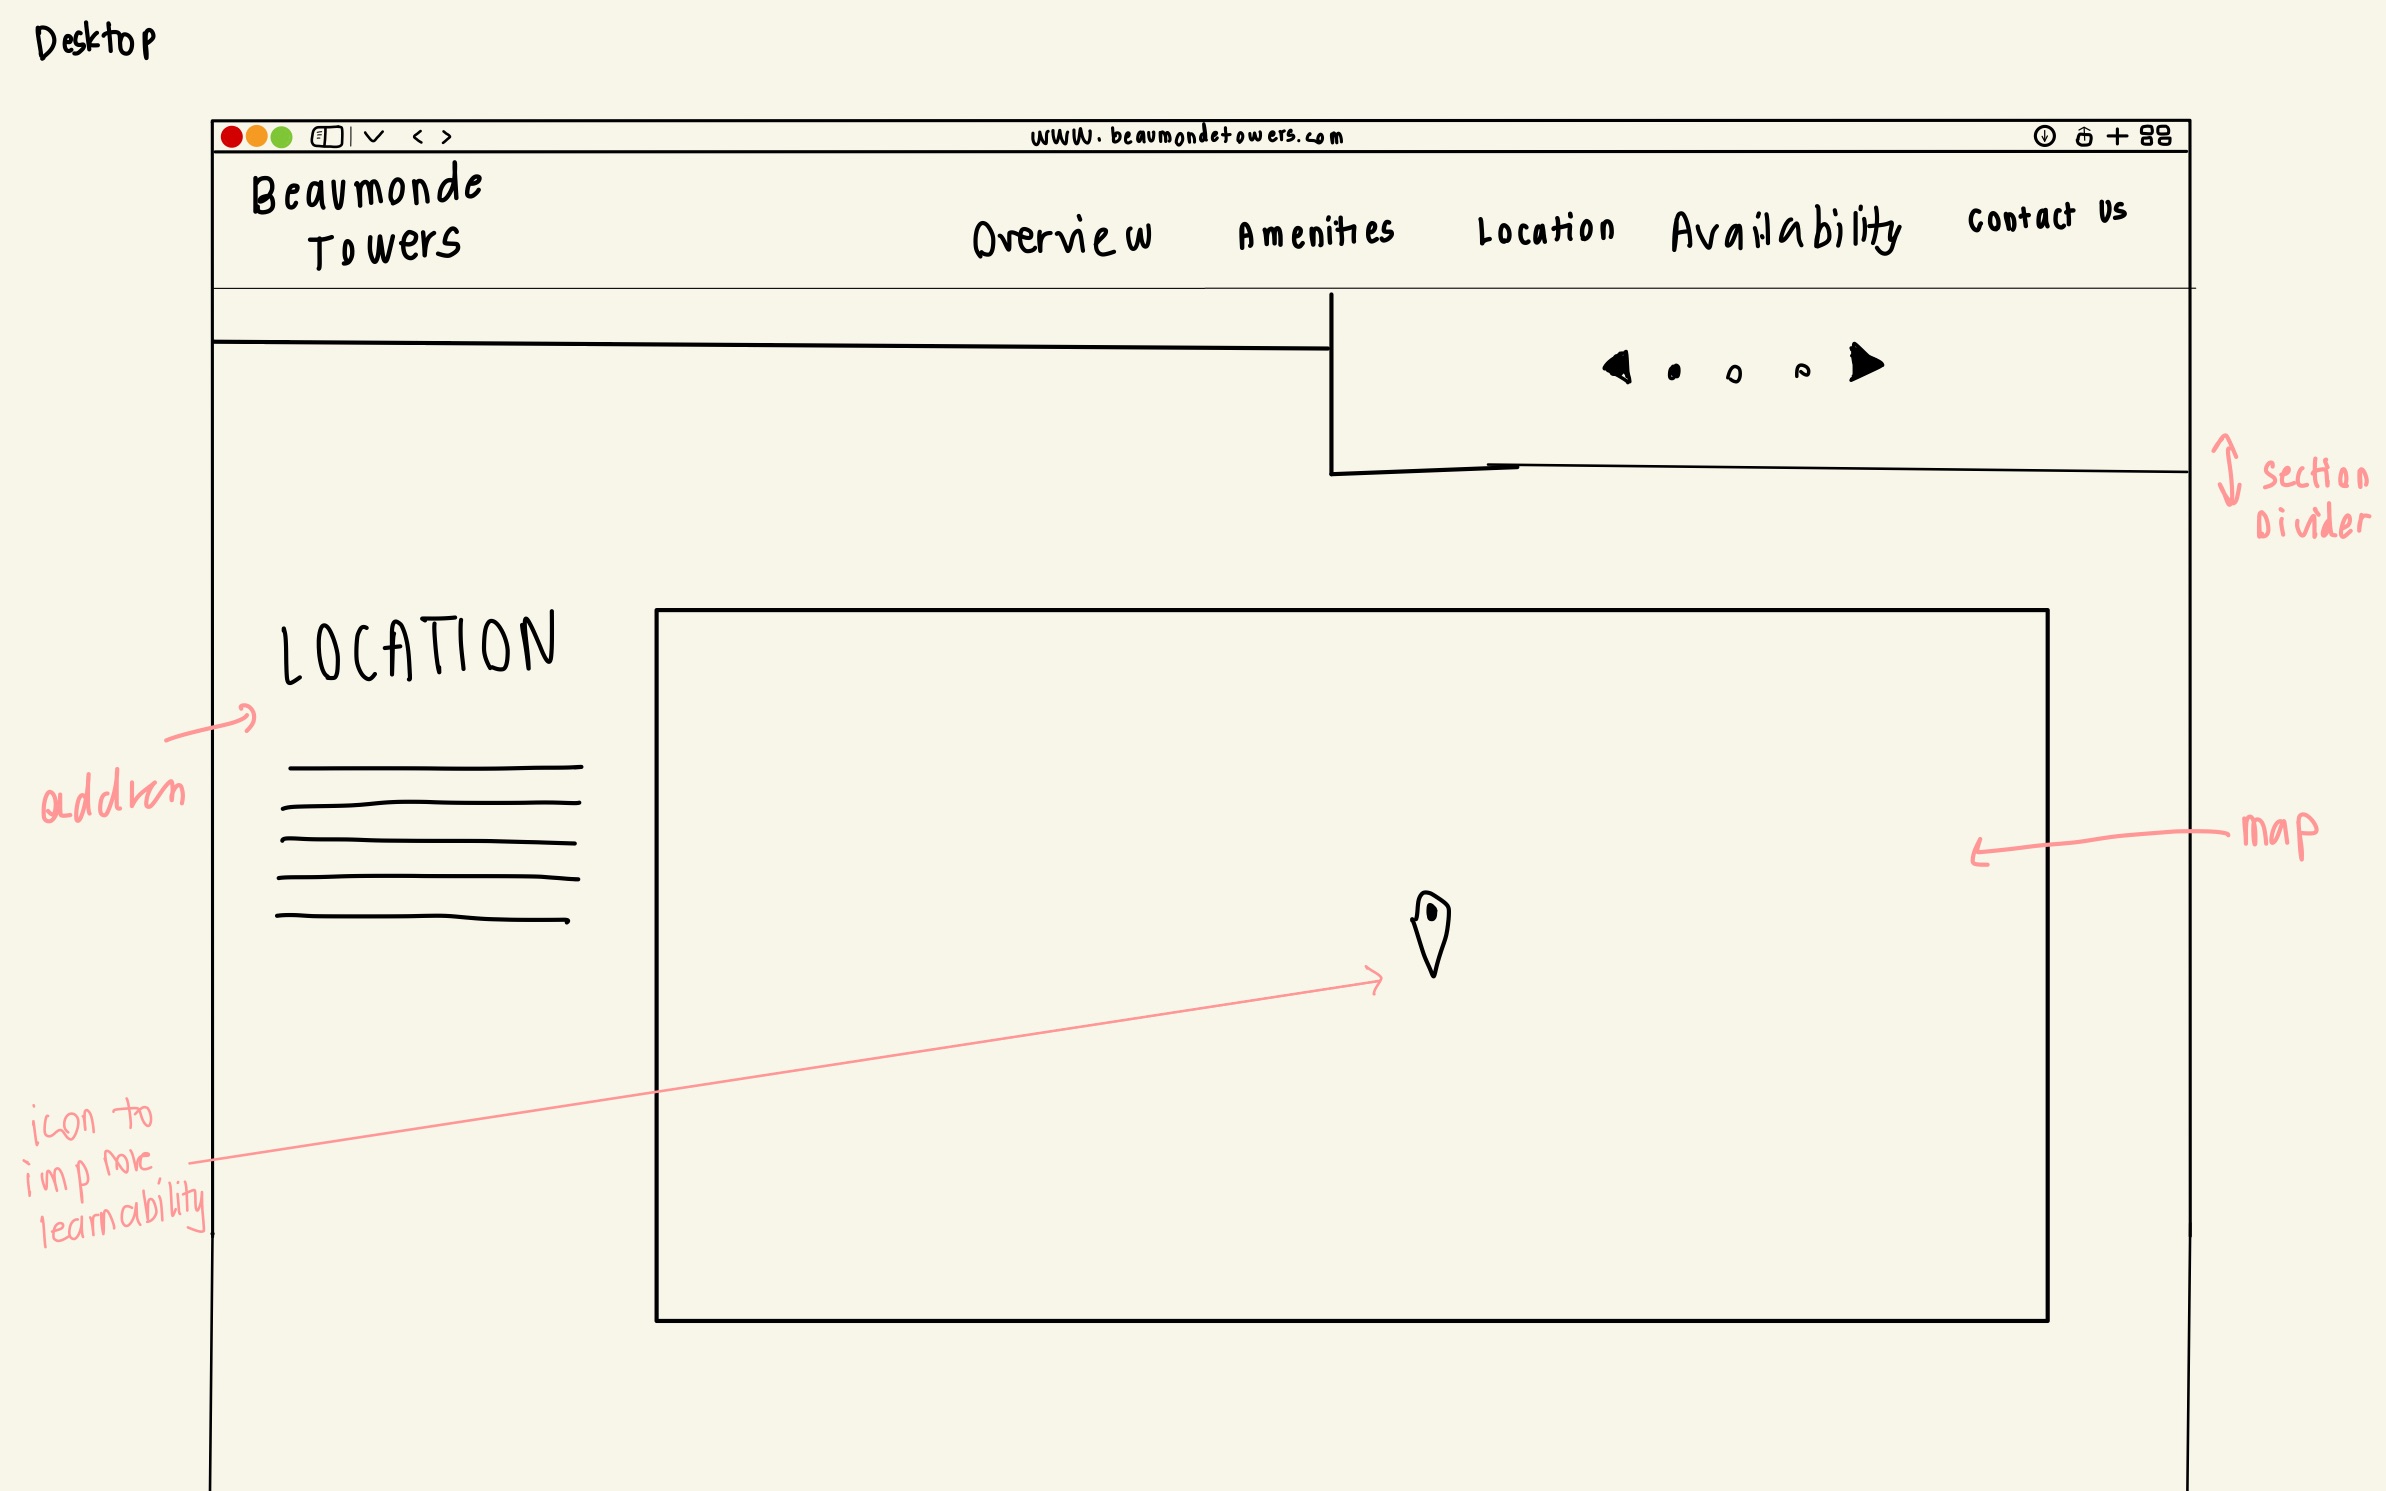 Desktop
www.beaumondetowers.com
Beaumonde
Towers
Overview Amenities Location Availability Contact Us
section
Divider
LOCATION
address
map
icon to
improve
learnability